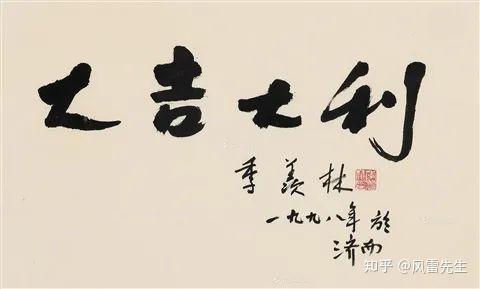 大吉大利
季羡林
一九九八年於
济南
知乎 @风雷先生